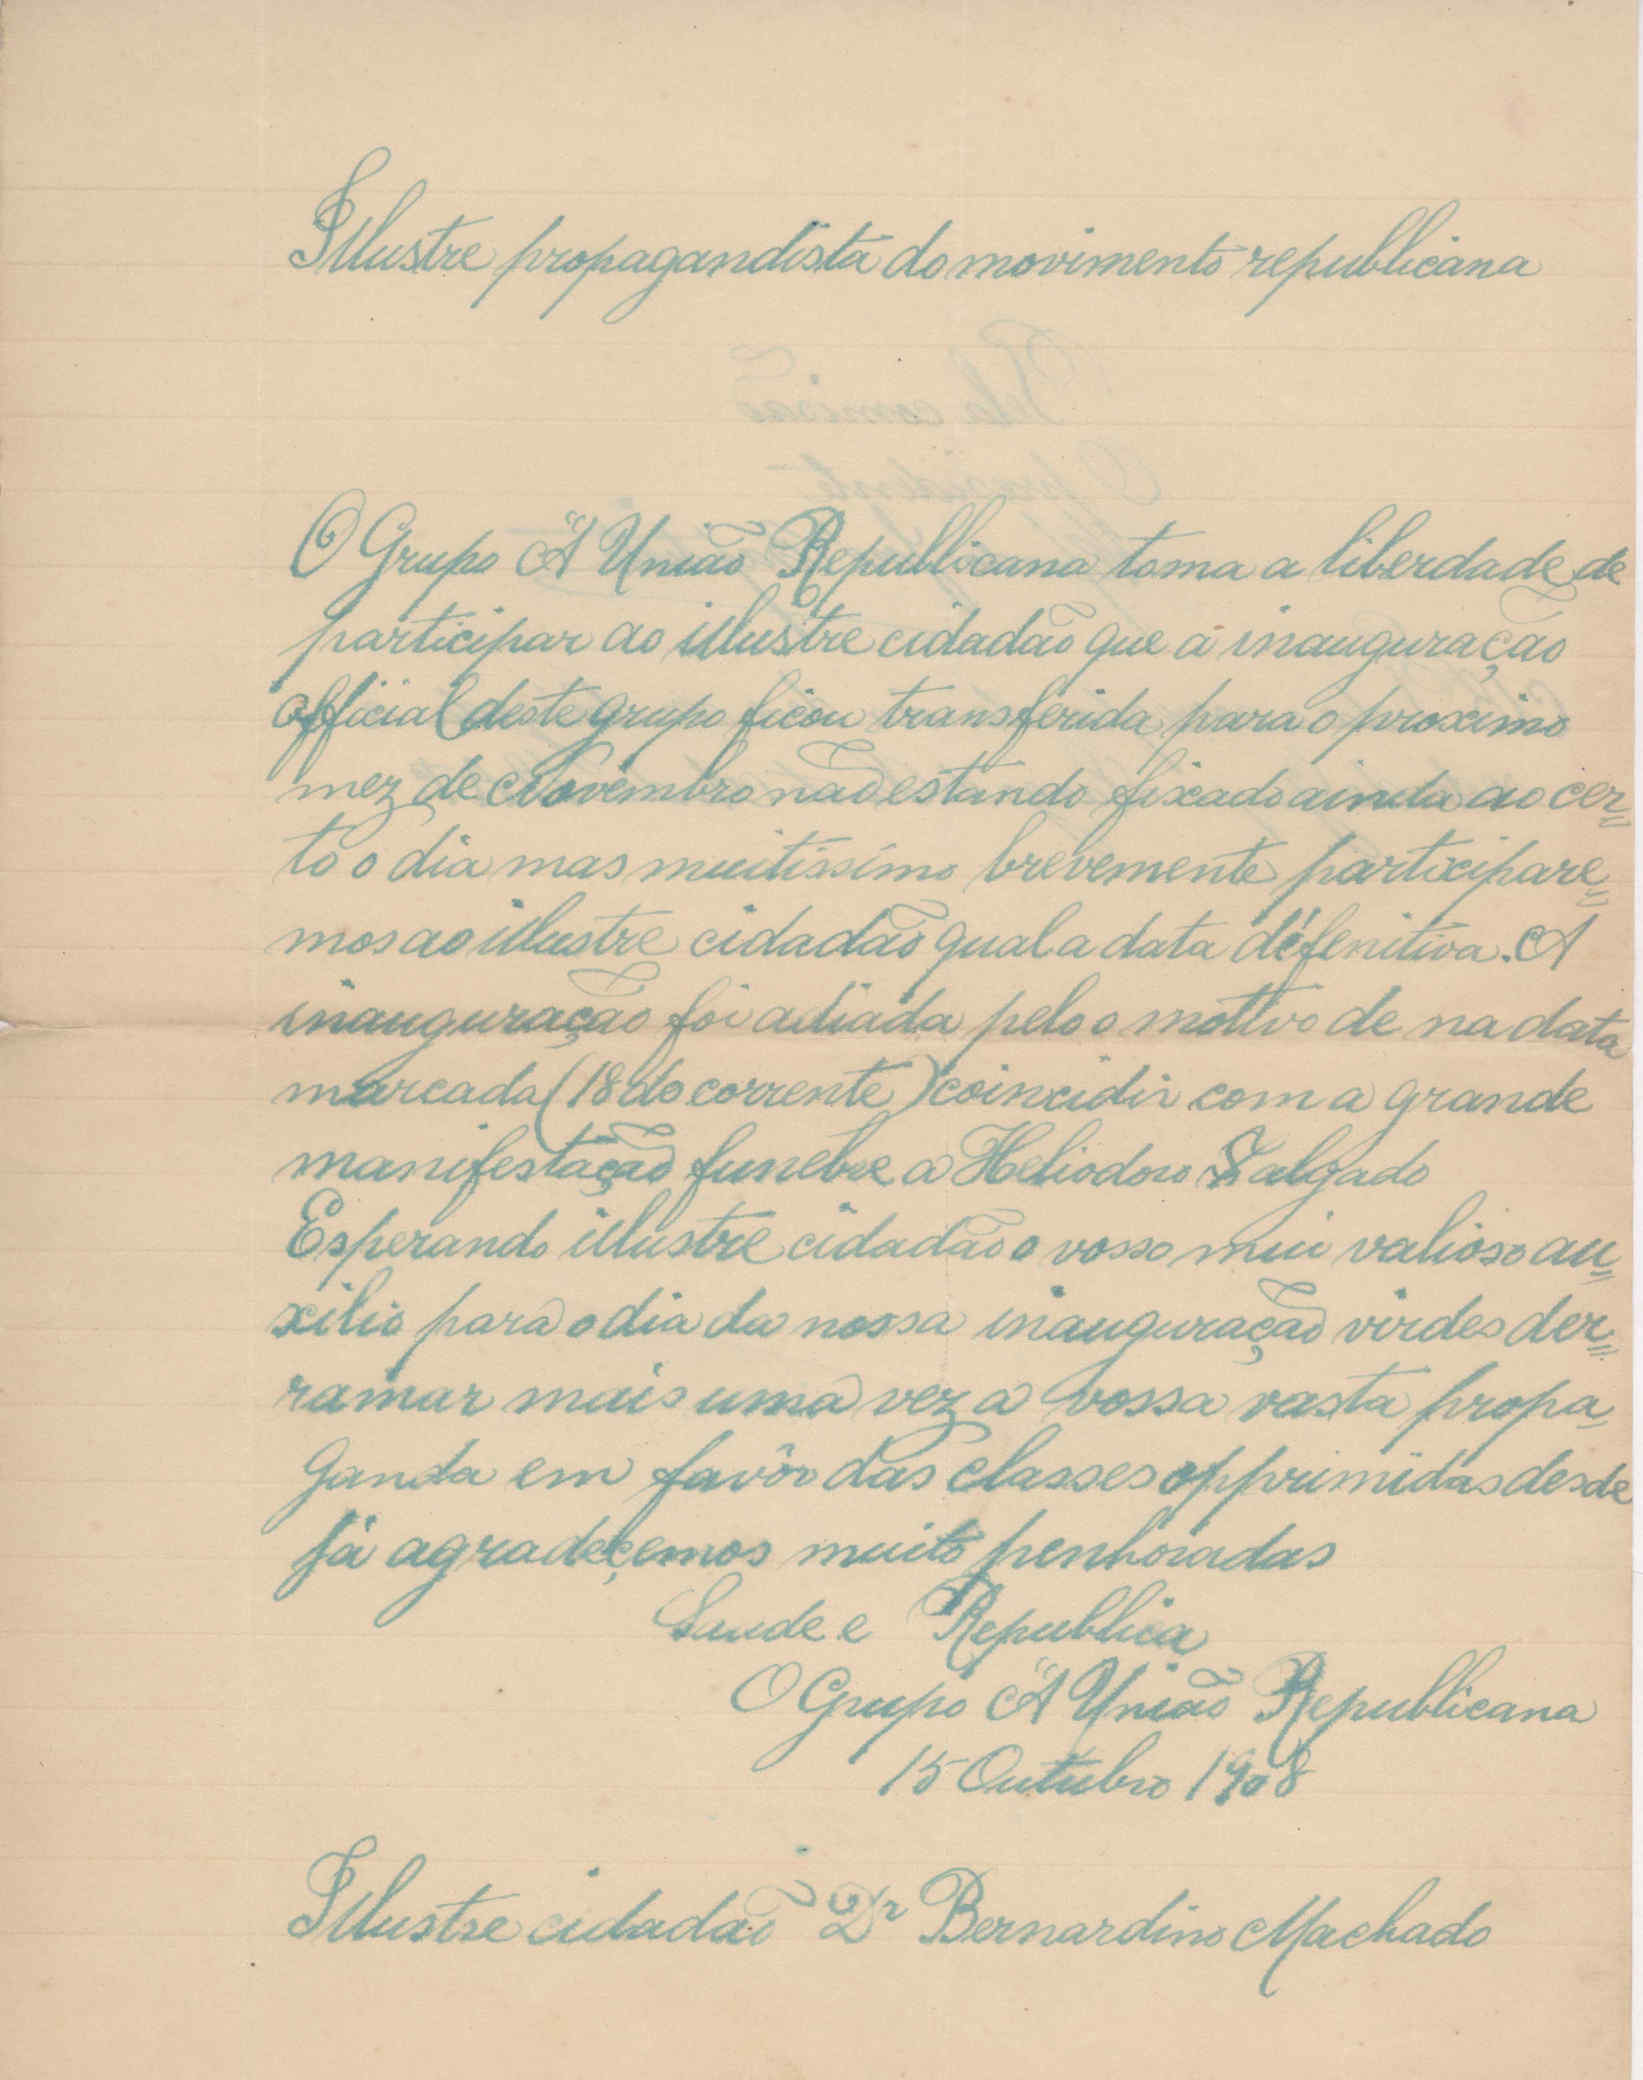 Illustre propagandista do movimento republicana
O Grupo "A União Republicana toma a liberdade de
participar ao illustre cidadão que a inauguração
official deste grupo ficou transferida para o proximo
mez de Novembro não estando fixado ainda ao cer=
to o dia mas muitissimo brevemente participare=
mos ao illustre cidadão qual a data défenitiva. A
inauguração foi adiada pelo o motivo de na data
marcada (18 do corrente) coincidir com a grande
manifestação funebre a Heliodoro Salgado
Esperando illustre cidadão o vosso mui valioso au=
xilio para o dia da nossa inauguração virdes der=
ramar mais uma vez a vossa vasta propa=
ganda em favôr das classes opprimidas desde
já agradeçemos muito penhoradas
Saude e Republica
O Grupo "A União Republicana
15 Outubro 1908
Illustre cidadão Dr Bernardino Machado